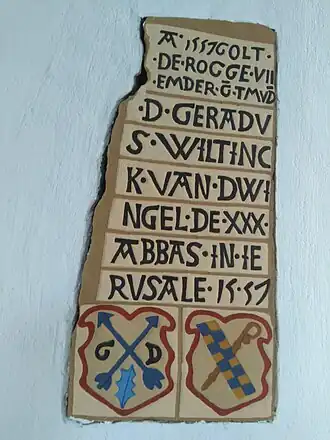 A·1557GOLT·
·DE·ROGGE·VII
·EMDER·G̅·TMVD̅
·D·GERADV
S·WILTINC
K·VAN·DWI
NGEL·DE·XXX·
ABBAS·IN·IE
RVSALE·15·57
G D